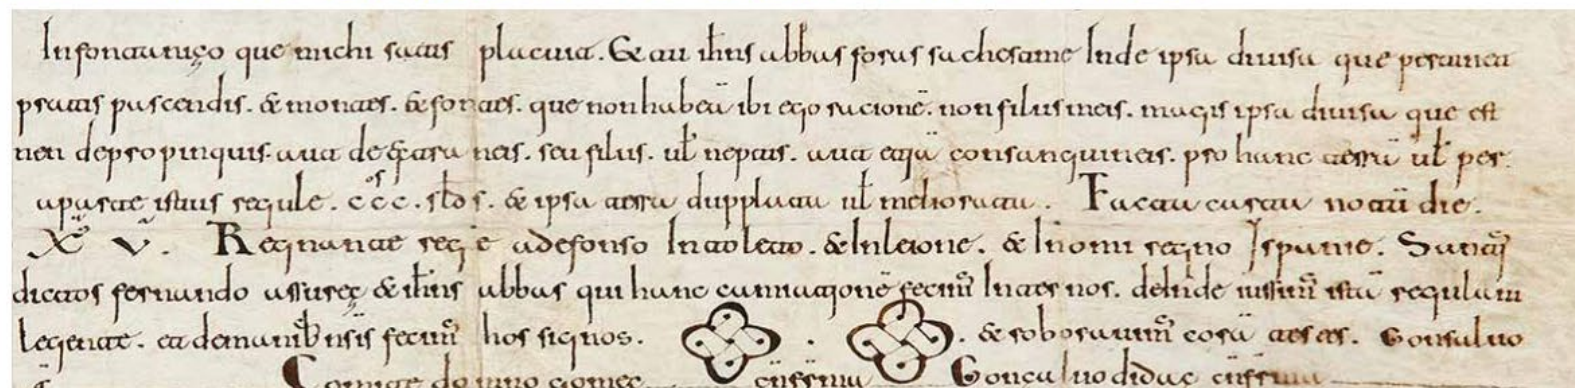 In fonctanuço que michi satis placuit. Et au ihns abbas foras sachestame Inde ipsa divisa que pertinet
pratis pascendis. & montes. & fontes. que non habeā ibi ego racionē. non filiis meis. magis ipsa divisa que est
nen de propinquis. aut de extraneis. seu filiis. ul neptis. aut etiā consanguineis. pro hunc terrā ul per
a parte istius regule. ccc.os slds. & ipsa terra dupplata ul meliorata. Facta carta notū die.
XV. Regnante rege adefonso In toleto. & In leione. & In omi regno Ispanie. Sancii
dictos fernando assureç & ihns abbas qui hanc camiationē fecim Inter nos. deInde iussim istā regulam
legente. et de manib nsis fecim hos signos. . & roboravim corā testes. Gonsalvo
Comite domno gomeç Gonçalvo didaç